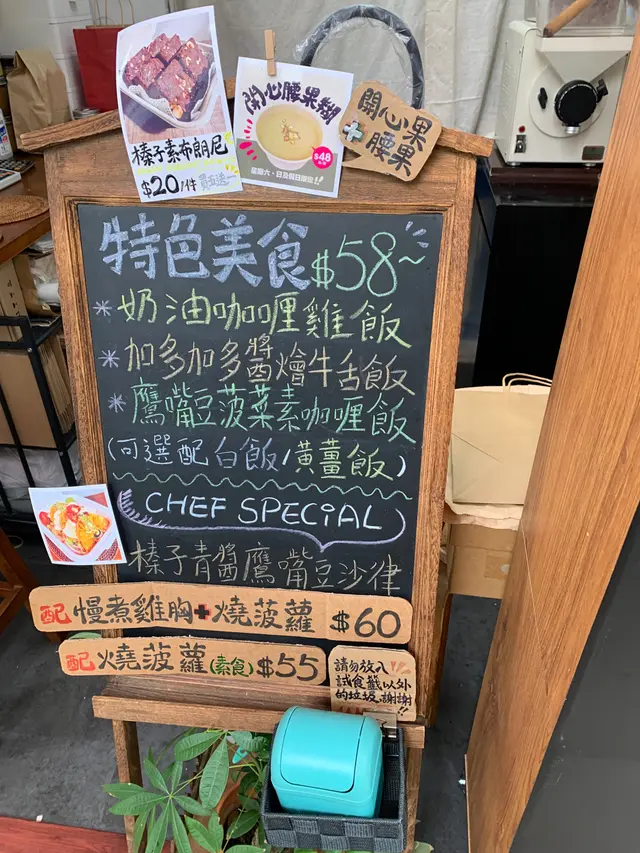 榛子素布朗尼
$20/件
開心腰果糊
$48
星期六、日及假日限定!!
開心果
+腰果
特色美食 $58~
*奶油咖喱雞飯
*加多加多醬燴牛舌飯
*鷹嘴豆菠菜素咖喱飯
(可選配白飯/黃薑飯)
CHEF SPECiAL
榛子青醬鷹嘴豆沙律
配慢煮雞胸+燒菠蘿 $60
配燒菠蘿(素食) $55
請勿放入
試食籤以外
的垃圾,謝謝!!